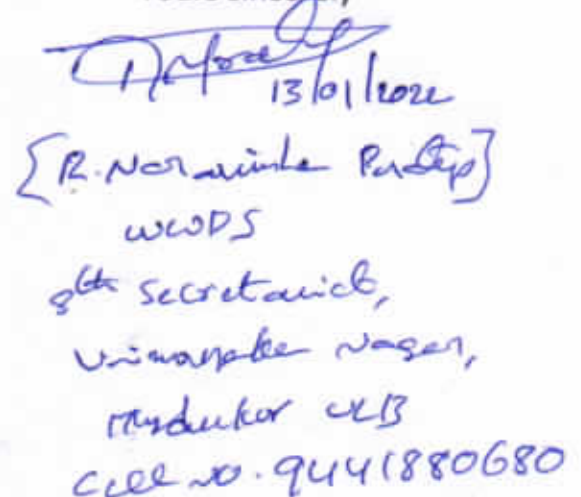 13/01/2022
[R. Narasimha Pradeep]
WWDS
8th Secretariat,
Nagar,
Mydukur ULB
Cell no. 9441880680